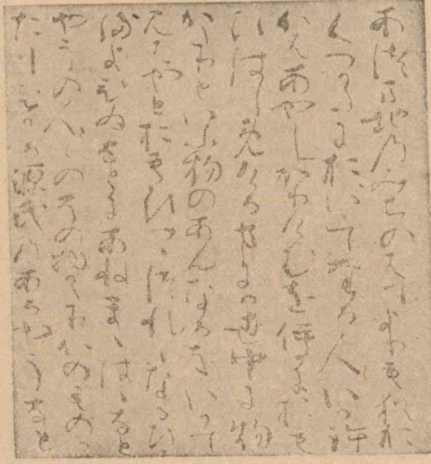 あつま地の道のはてよりも猶お
くつ方においいてたる人いか許
かはあやしかりけむをいかにおも
ひはしめける事にか世中に物
かたりといふ物のあんなるをいかて
見はやとおもひつゝつれ〳〵なるひ
るまよひゐなとにあねまゝはゝなと
やうの人〳〵のその物かたりかのものか
たりひかる源氏のあるやうなと